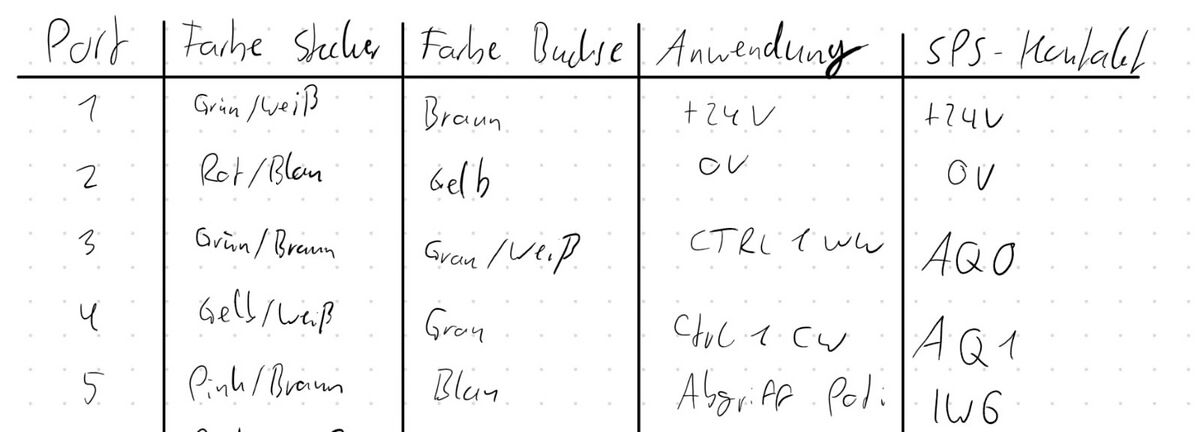 Port Farbe Stecker Farbe Buchse Anwendung SPS-Kontakt
1 Grün/weiß Braun +24V +24V
2 Rot/Blau Gelb 0V 0V
3 Grün/Braun Grau/Weiß CTRL 1 WW AQ0
4 Gelb/weiß Grau Ctrl 1 CW AQ1
5 Pink/Braun Blau Abgriff Poti IW6